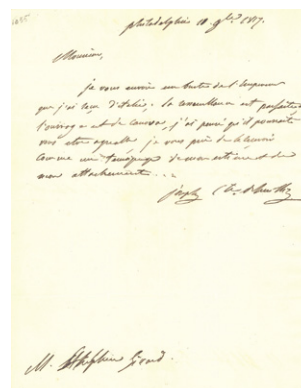 philadelphia 10 9bre 1817.
Monsieur,
je vous envoie un buste de l'Empereur
que j'ai reçu d'italie; la ressemblance est parfaite
l'ouvrage est de canova, j'ai pensé qu'il pourrait
vous etre agreable je vous prie de le recevoir
comme un témoignage de mon estime et de
mon attachement...
joseph
M. Stephen Girard.